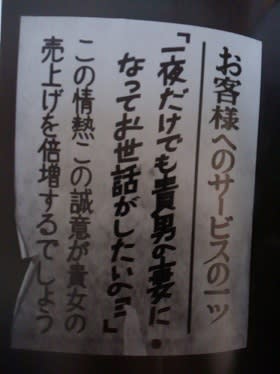 お客様へのサービスの一ツ
「一夜だけでも貴男の妻に
なってお世話がしたいの…」
この情熱この誠意が貴女の
売上げを倍増するでしょう